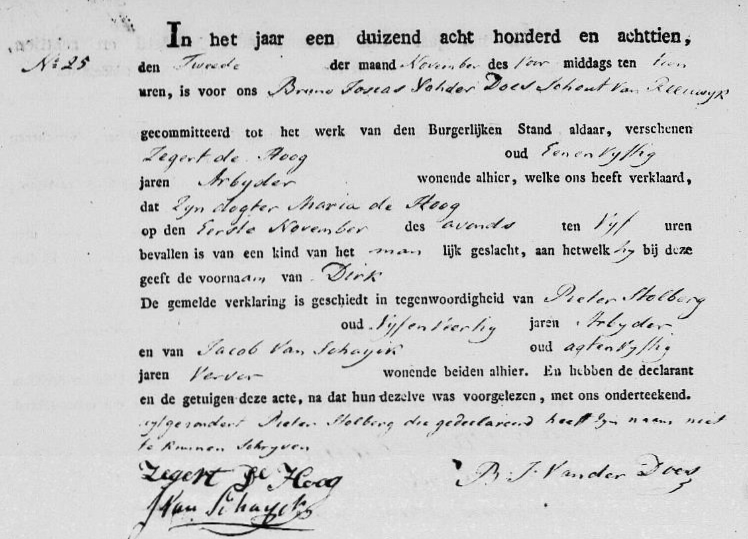 In het jaar een duizend acht honderd en achttien,
No 25 den Tweede der maand November des Voor middags ten tien
uren, is voor ons Bruno Josias Vander Does Schout Van Reeuwyk
gecommitteerd tot het werk van den Burgerlijken Stand aldaar, verschenen
Zegert de Hoog oud Eenenvyftig
jaren Arbyder wonende alhier, welke ons heeft verklaard,
dat Zyn dogter Maria de Hoog
op den Eerste November des avonds ten Vyf uren
bevallen is van een kind van het man lijk geslacht, aan hetwelk hy bij deze
geeft de voornaam van Dirk
De gemelde verklaring is geschiedt in tegenwoordigheid van Pieter Stolberg
oud Vyfenveertig jaren Arbyder
en van Jacob Van Schayik oud agtenvyftig
jaren Verver wonende beiden alhier. En hebben de declarant
en de getuigen deze acte, na dat hun dezelve was voorgelezen, met ons onderteekend.
uytgezondert Pieter Stolberg die gedeclareerd heeft zyn naam niet
te kunnen Schryven
Zegert De Hoog B. J. Vander Does
J Van Schayck